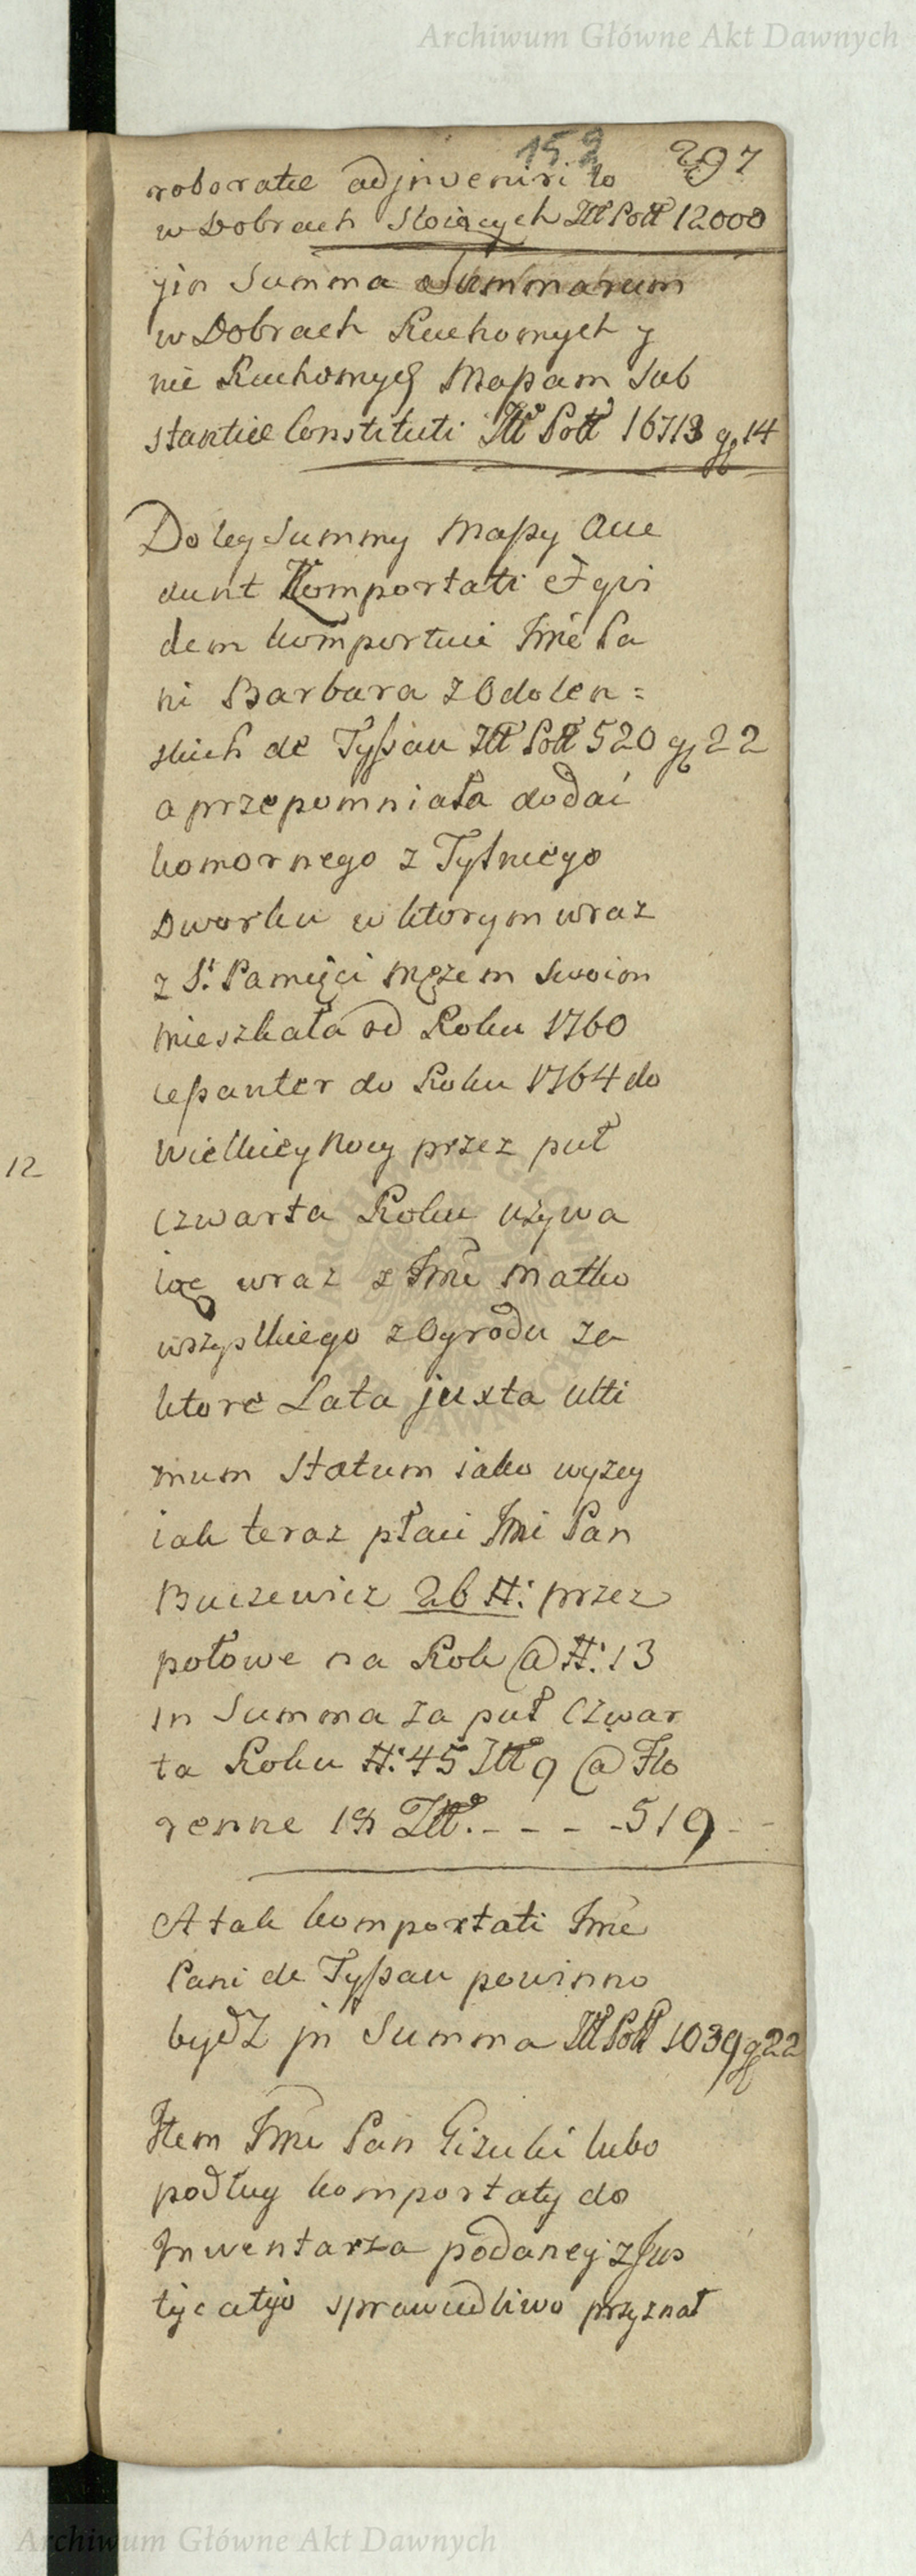 Archiwum Główne Akt Dawnych
152 297
roboratæ adjnveniri to
w Dobrach Stoiących Złł Poll 12000
jin Summa Summarum
w Dobrach Ruchomych y
nie Ruchomych Massam Sub
stantiæ Constituti Złł Poll 16713 g 14
Do tey Summy Massy Acce
dunt Komportati Et qvi
dem komportuie Jmć Pa
ni Barbara z Odolen=
skich de Tyssau Złł Poll 520 g 22
a przepomniała dodać
komornego z Tylniego
Dworku w ktorym wraz
z S: Pamięci Mężem Swoim
Mieszkała od Roku 1760
cessanter do Roku 1764 do
Wielkiey Nocy przez puł
Czwarta Roku używa
iąc wraz z Jmć Matko
wszystkiego z Ogrodu za
ktore Lata juxta ulti
mum Statum iako wyzey
iak teraz płaci Jmć Pan
Buczewicz 26 #: przez
połowe na Rok @ #: 13
in Summa za puł Czwar
ta Roku #: 45 Złł 9 @ Flo
renne 18 Złł. - - - - 519 - -
A tak komportati Jmć
Pani de Tyssau powinno
bydź jn Summa Złł Poll 1039 g 22
Jtem Jmć Pan Gizuki lubo
podług komportaty do
Jnwentarza podaney z Jus
tycatyo sprawiedliwo przyznał
12
Archiwum Główne Akt Dawnych